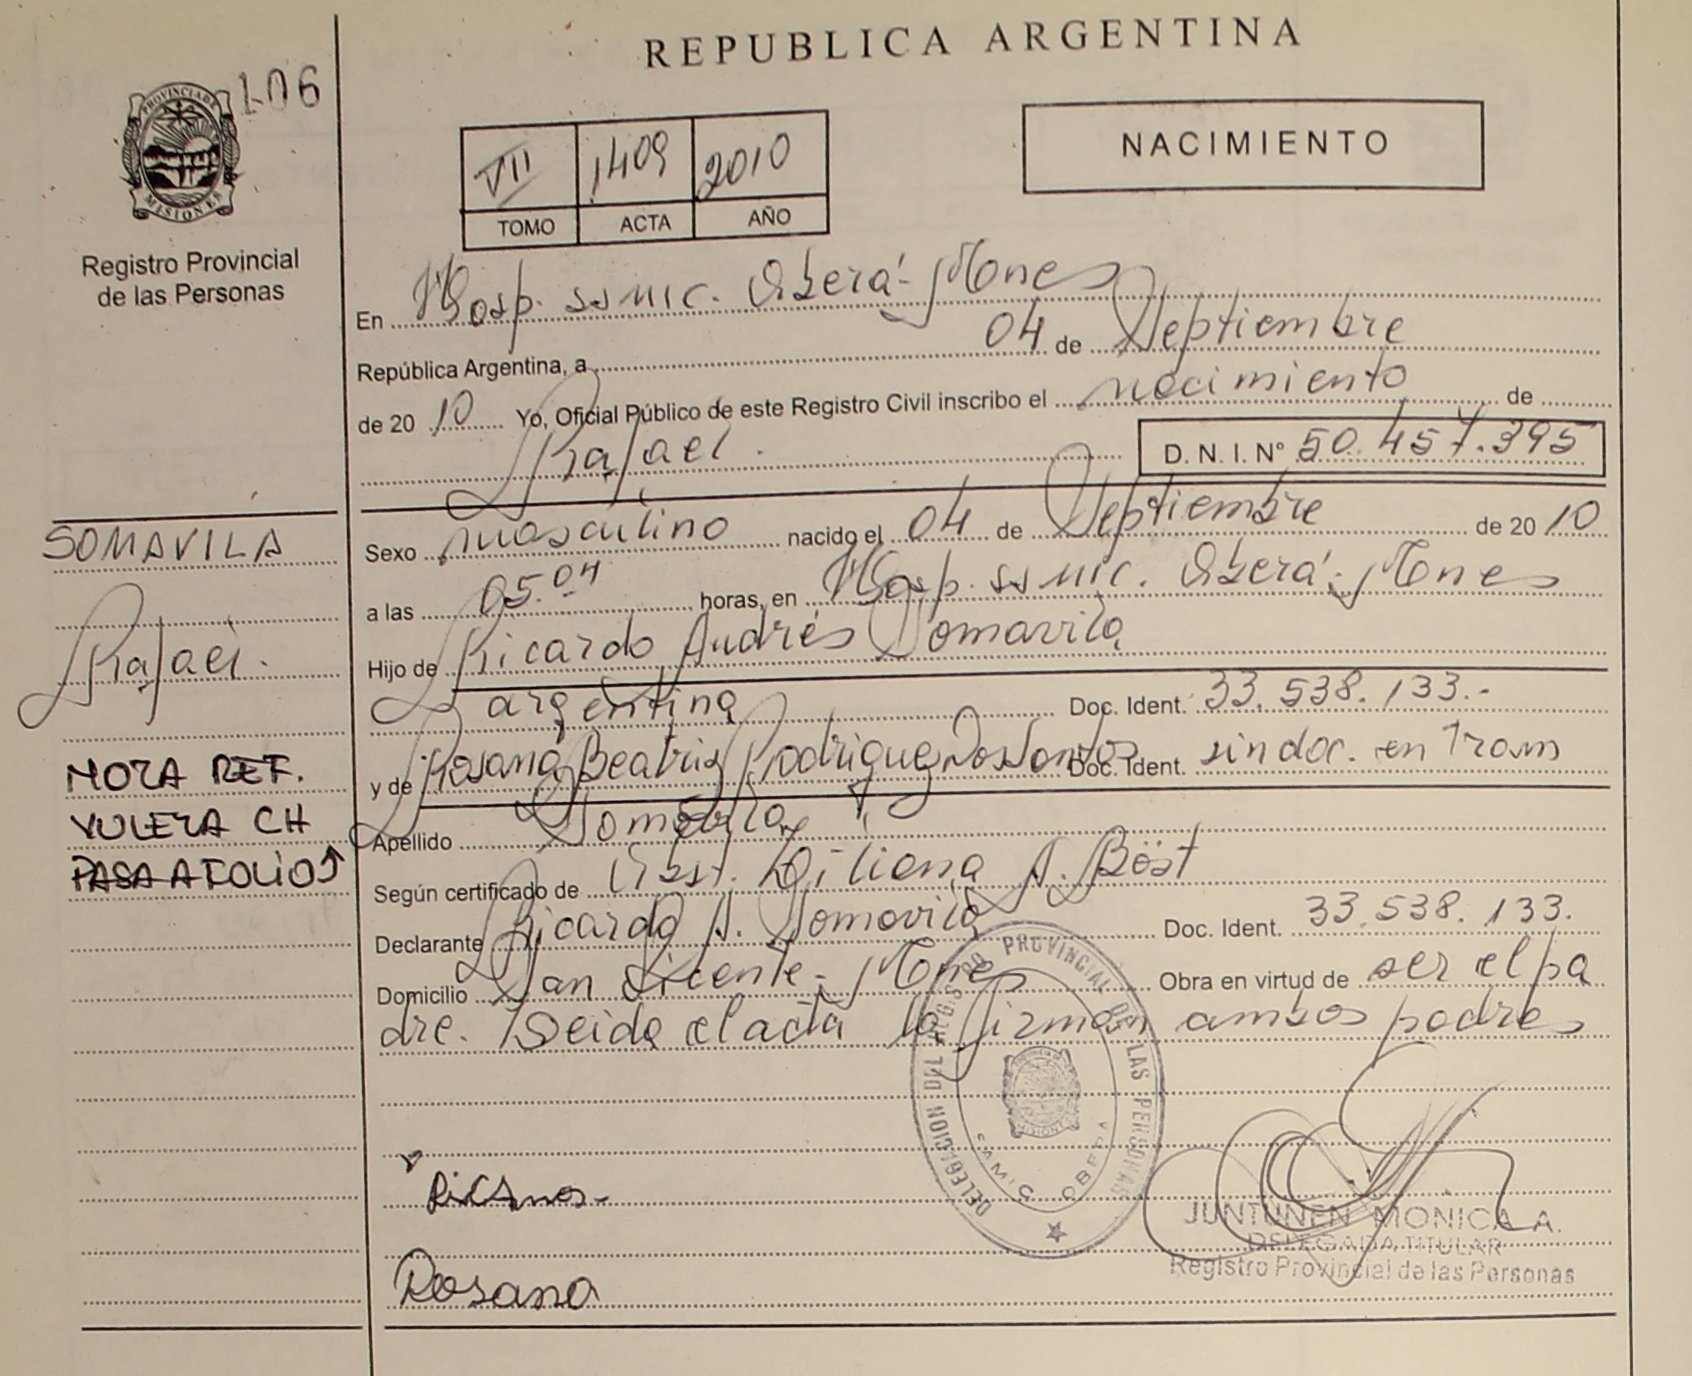 REPUBLICA ARGENTINA
106
PROVINCIA DE
MISIONES
Registro Provincial
de las Personas
VII 1409 2010
TOMO ACTA AÑO
NACIMIENTO
En Hosp. SSMIC. Oberá - Mones
República Argentina, a 04 de Septiembre
de 2010 Yo, Oficial Público de este Registro Civil inscribo el nacimiento de
Rafael. D. N. I. Nº 50.457.395
SOMAVILA
Rafael.
NOTA REF.
CH
PASA A FOLIO
Sexo masculino nacido el 04 de Septiembre de 2010
a las 05.04 horas, en Hosp. SSMIC. Oberá - Mones
Hijo de Ricardo Andrés Somavila
argentina Doc. Ident. 33.538.133.-
y de Rosana Beatriz Rodriguez Dos Santos Doc. Ident. sin doc. en Tram
Apellido Somavila
Según certificado de Obst. Liliana A. Böst
Declarante Ricardo A. Somavila Doc. Ident. 33.538.133.
Domicilio San Vicente - Mones Obra en virtud de ser el pa
dre. Leida el acta la firman ambos padres
DELEGACION DEL REGISTRO PROVINCIAL DE LAS PERSONAS
SAMIC OBERA
Rosana
JUNTUNEN MONICA A.
DELEGADA TITULAR
Registro Provincial de las Personas